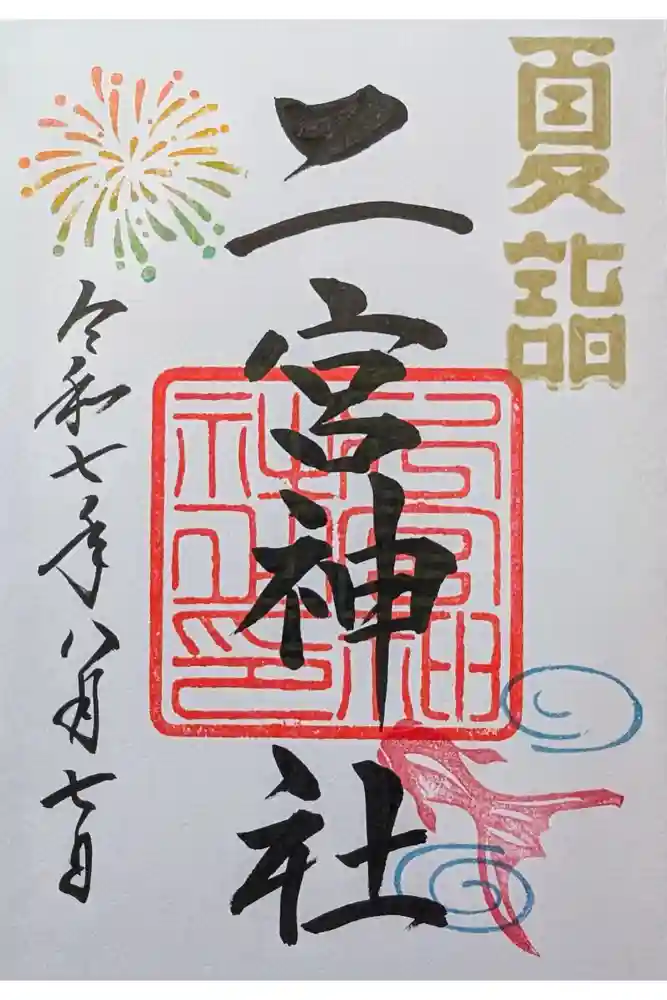 夏詣
二宮神社
令和七年八月七日